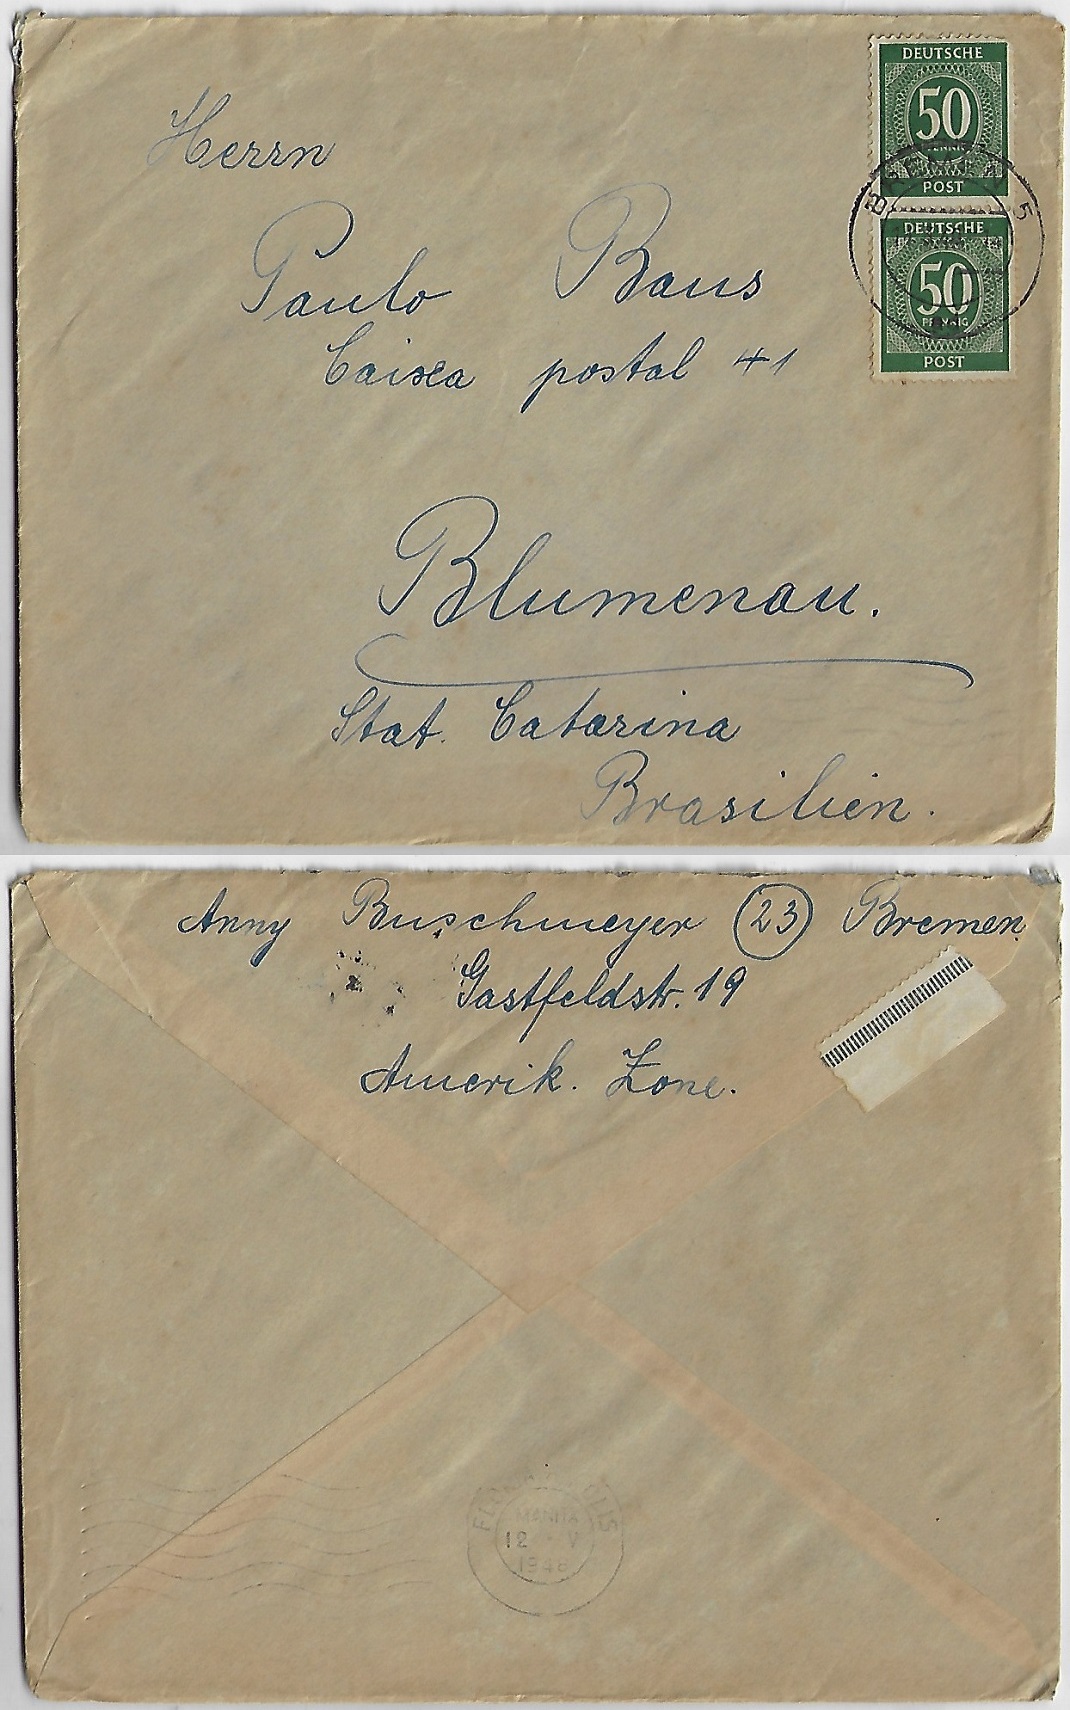 DEUTSCHE
50
PFENNIG
POST
DEUTSCHE
50
PFENNIG
POST
5
Herrn
Paulo Baus
Caixa postal 41
Blumenau.
Stat. Catarina
Brasilien.
Anny Buschmeyer (23) Bremen
Gastfeldstr. 19
Amerik. Zone.
MANHÃ
12 V
1948